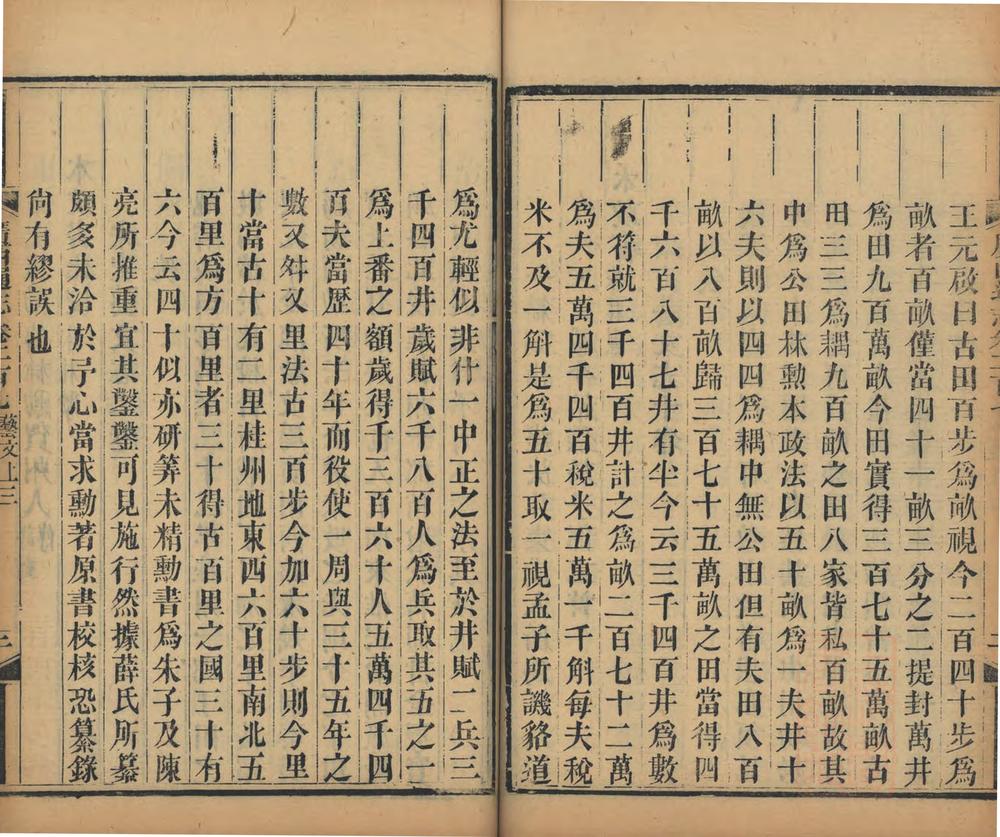 王元啟曰古田百步爲畝視今二百四十步爲
畝者百畝僅當四十一畝三分之二提封萬井
爲田九百萬畝今田實得三百七十五萬畝古
田三三爲耦九百畝之田八家皆私百畝故其
中爲公田林勲本政法以五十畝爲一夫井十
六夫則以四四爲耦中無公田但有夫田八百
畝以八百畝歸三百七十五萬畝之田當得四
千六百八十七井有半今云三千四百井爲數
不符就三千四百井計之爲畝二百七十二萬
爲夫五萬四千四百稅米五萬一千斛每夫稅
米不及一斛是爲五十取一視孟子所譏貉道
爲尤輕似非什一中正之法至於井賦二兵三
千四百井歲賦六千八百人爲兵取其五之一
爲上番之額歲得千三百六十人五萬四千四
百夫當歴四十年而役使一周與三十五年之
數又舛又里法古三百步今加六十步則今里
十當古十有二里桂州地東西六百里南北五
百里爲方百里者三十得古百里之國三十有
六今云四十似亦研筭未精勲書爲朱子及陳
亮所推重宜其鑿鑿可見施行然據薛氏所纂
頗多未洽於予心當求勲著原書校核恐纂錄
尙有繆誤也